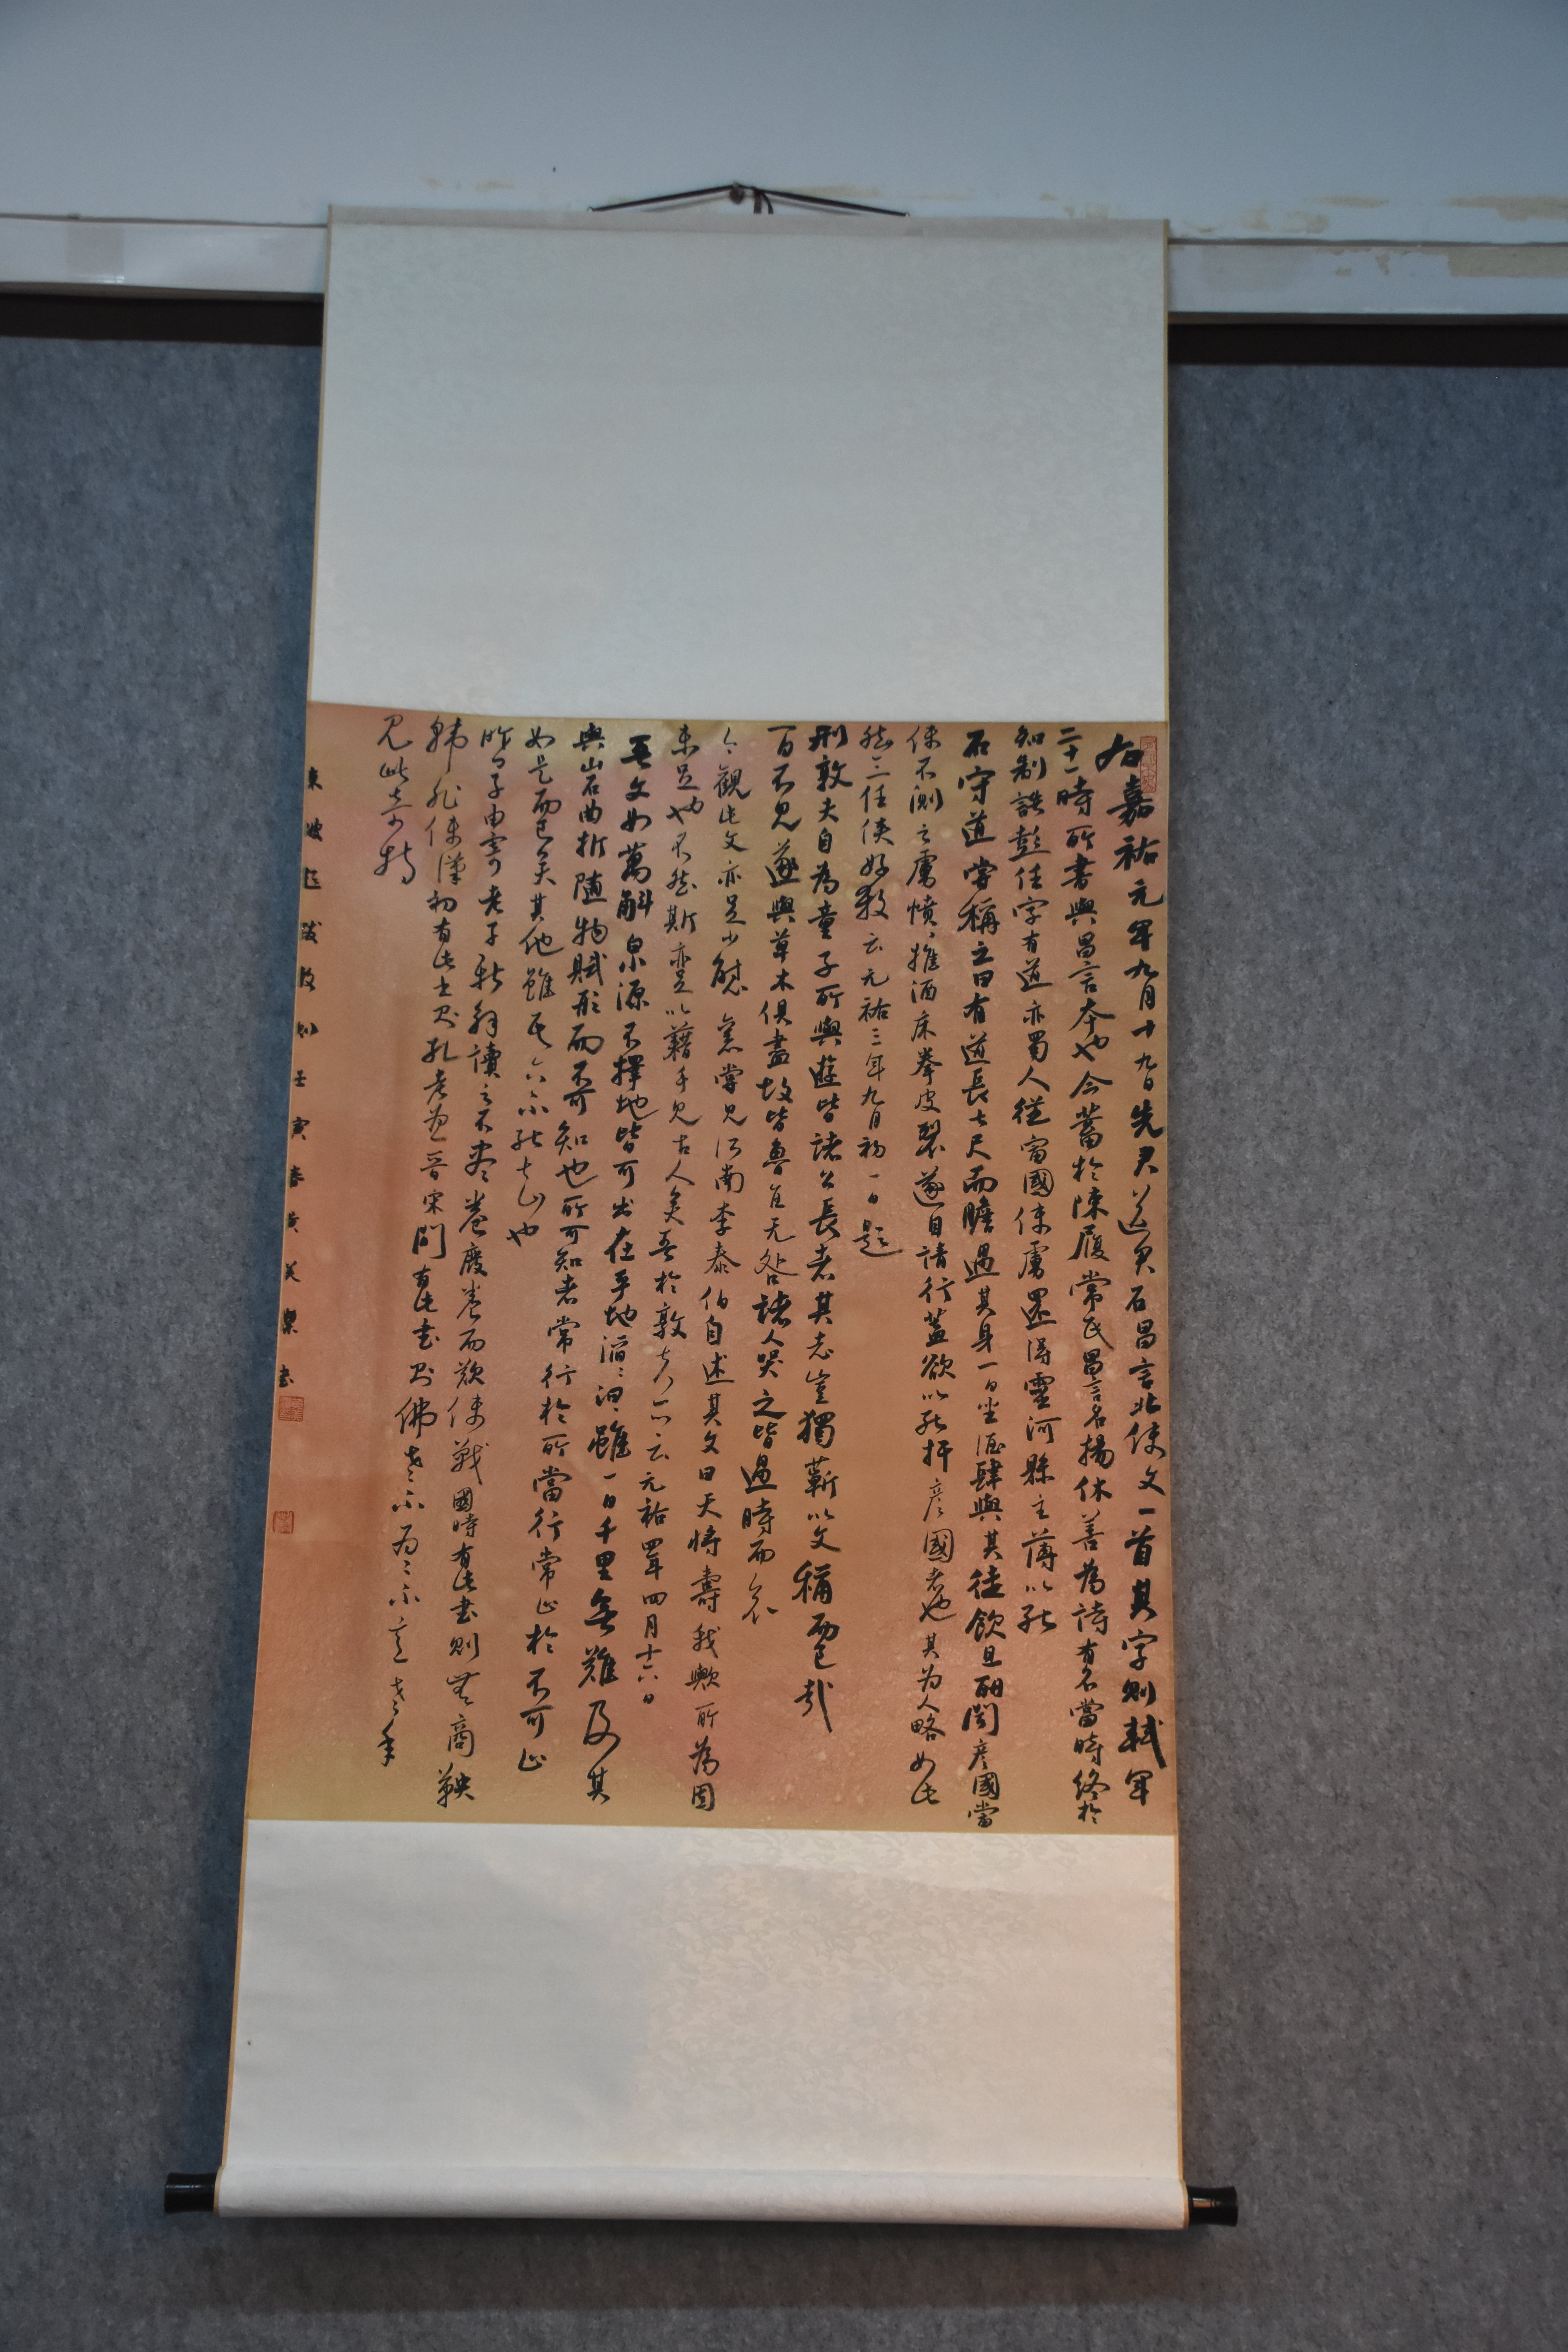 右嘉祐元年九月十九日先君送吳石昌言北使文一首其字則軾年
二十一時所書與昌言本也今蓄於陳履常氏昌言名揚休善為詩有名當時終於
知制誥彭任字有道亦蜀人從富國使虜還得靈河縣主薄以死
石守道嘗稱之曰有道長七尺而膽過其身一日坐酒肆與其徒飲且酣聞彥國當
使不測之虜憤憤推酒床拳皮裂遂自請行蓋欲以死扞彥國者也其为人略如此
然三任俠好殺云元祐三年九月初一日題
刑敦夫自為童子所與遊皆諸公長者其志豈獨蘄以文稱而已哉
百不見遂與草木俱盡故皆魯直无咎諸人哭之皆過時而哀
今觀此文亦足少慰意嘗見江南李泰伯自述其文曰天將壽我歟所為固
未足也不然斯亦足以藉手見古人矣吾於敦夫亦云元祐四年四月十六日
吾文如萬斛泉源不擇地皆可出在平地滔滔汩汩雖一日千里無難及其
與山石曲折隨物賦形而不可知也所可知者常行於所當行常止於不可止
如是而已矣其他雖吾亦不能知也
昨日子由寄老子新解讀之不盡卷廢卷而歎使戰國時有此書則無商鞅
韩非使漢初有此書則孔老為一晉宋間有此書則佛老不為二不意老年
見此奇特
東坡題跋數則壬寅春黃 樂書